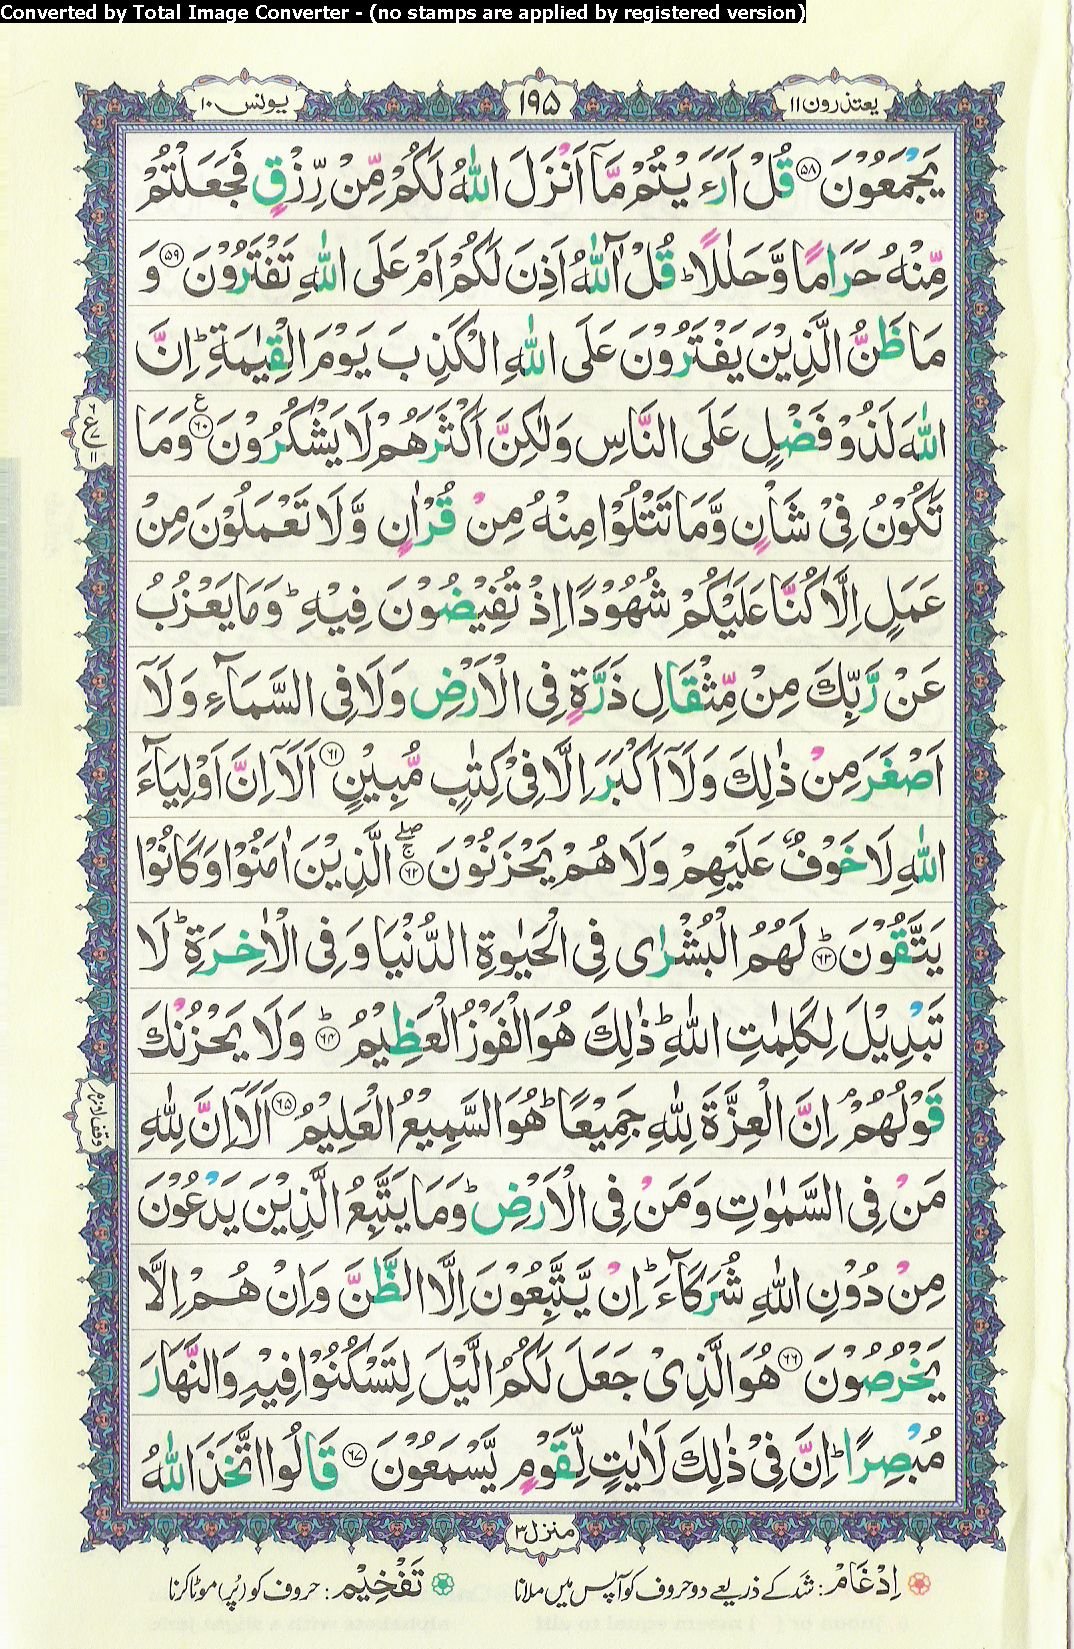 Converted by Total Image Converter - (no stamps are applied by registered version)
یعتذرون ۱۱
۱۹۵
یونس ۱۰
یَجْمَعُوْنَ ۵۸ قُلْ اَرَءَیْتُمْ مَّاۤ اَنْزَلَ اللّٰهُ لَكُمْ مِّنْ رِّزْقٍ فَجَعَلْتُمْ
مِّنْهُ حَرَامًا وَّحَلٰلًاؕ قُلْ آٰللّٰهُ اَذِنَ لَكُمْ اَمْ عَلَى اللّٰهِ تَفْتَرُوْنَ ۵۹ وَ
مَا ظَنُّ الَّذِیْنَ یَفْتَرُوْنَ عَلَى اللّٰهِ الْكَذِبَ یَوْمَ الْقِیٰمَةِؕ اِنَّ
اللّٰهَ لَذُوْ فَضْلٍ عَلَى النَّاسِ وَلٰكِنَّ اَكْثَرَهُمْ لَا یَشْكُرُوْنَ ۶۰ع وَمَا
تَكُوْنُ فِیْ شَاْنٍ وَّمَا تَتْلُوْا مِنْهُ مِنْ قُرْاٰنٍ وَّلَا تَعْمَلُوْنَ مِنْ
عَمَلٍ اِلَّا كُنَّا عَلَیْكُمْ شُهُوْدًا اِذْ تُفِیْضُوْنَ فِیْهِؕ وَمَا یَعْزُبُ
عَنْ رَّبِّكَ مِنْ مِّثْقَالِ ذَرَّةٍ فِی الْاَرْضِ وَلَا فِی السَّمَآءِ وَلَاۤ
اَصْغَرَ مِنْ ذٰلِكَ وَلَاۤ اَكْبَرَ اِلَّا فِیْ كِتٰبٍ مُّبِیْنٍ ۶۱ اَلَاۤ اِنَّ اَوْلِیَآءَ
اللّٰهِ لَا خَوْفٌ عَلَیْهِمْ وَلَا هُمْ یَحْزَنُوْنَ ۶۲ۚۖ الَّذِیْنَ اٰمَنُوْا وَكَانُوْا
یَتَّقُوْنَ ۶۳ؕ لَهُمُ الْبُشْرٰى فِی الْحَیٰوةِ الدُّنْیَا وَفِی الْاٰخِرَةِؕ لَا
تَبْدِیْلَ لِكَلِمٰتِ اللّٰهِؕ ذٰلِكَ هُوَ الْفَوْزُ الْعَظِیْمُ ۶۴ؕ وَلَا یَحْزُنْكَ
قَوْلُهُمْۘ اِنَّ الْعِزَّةَ لِلّٰهِ جَمِیْعًاؕ هُوَ السَّمِیْعُ الْعَلِیْمُ ۶۵ اَلَاۤ اِنَّ لِلّٰهِ
مَنْ فِی السَّمٰوٰتِ وَمَنْ فِی الْاَرْضِؕ وَمَا یَتَّبِعُ الَّذِیْنَ یَدْعُوْنَ
مِنْ دُوْنِ اللّٰهِ شُرَكَآءَؕ اِنْ یَّتَّبِعُوْنَ اِلَّا الظَّنَّ وَاِنْ هُمْ اِلَّا
یَخْرُصُوْنَ ۶۶ هُوَ الَّذِیْ جَعَلَ لَكُمُ الَّیْلَ لِتَسْكُنُوْا فِیْهِ وَالنَّهَارَ
مُبْصِرًاؕ اِنَّ فِیْ ذٰلِكَ لَاٰیٰتٍ لِّقَوْمٍ یَّسْمَعُوْنَ ۶۷ قَالُوا اتَّخَذَ اللّٰهُ
۶ ع ۷ ۱۱
وقف لازم
منزل ۳
اِدْغَامْ: شَد کے ذریعے دو حروف کو آپس میں ملانا
تَفْخِیْم: حروف کو (پُر) موٹا کرنا